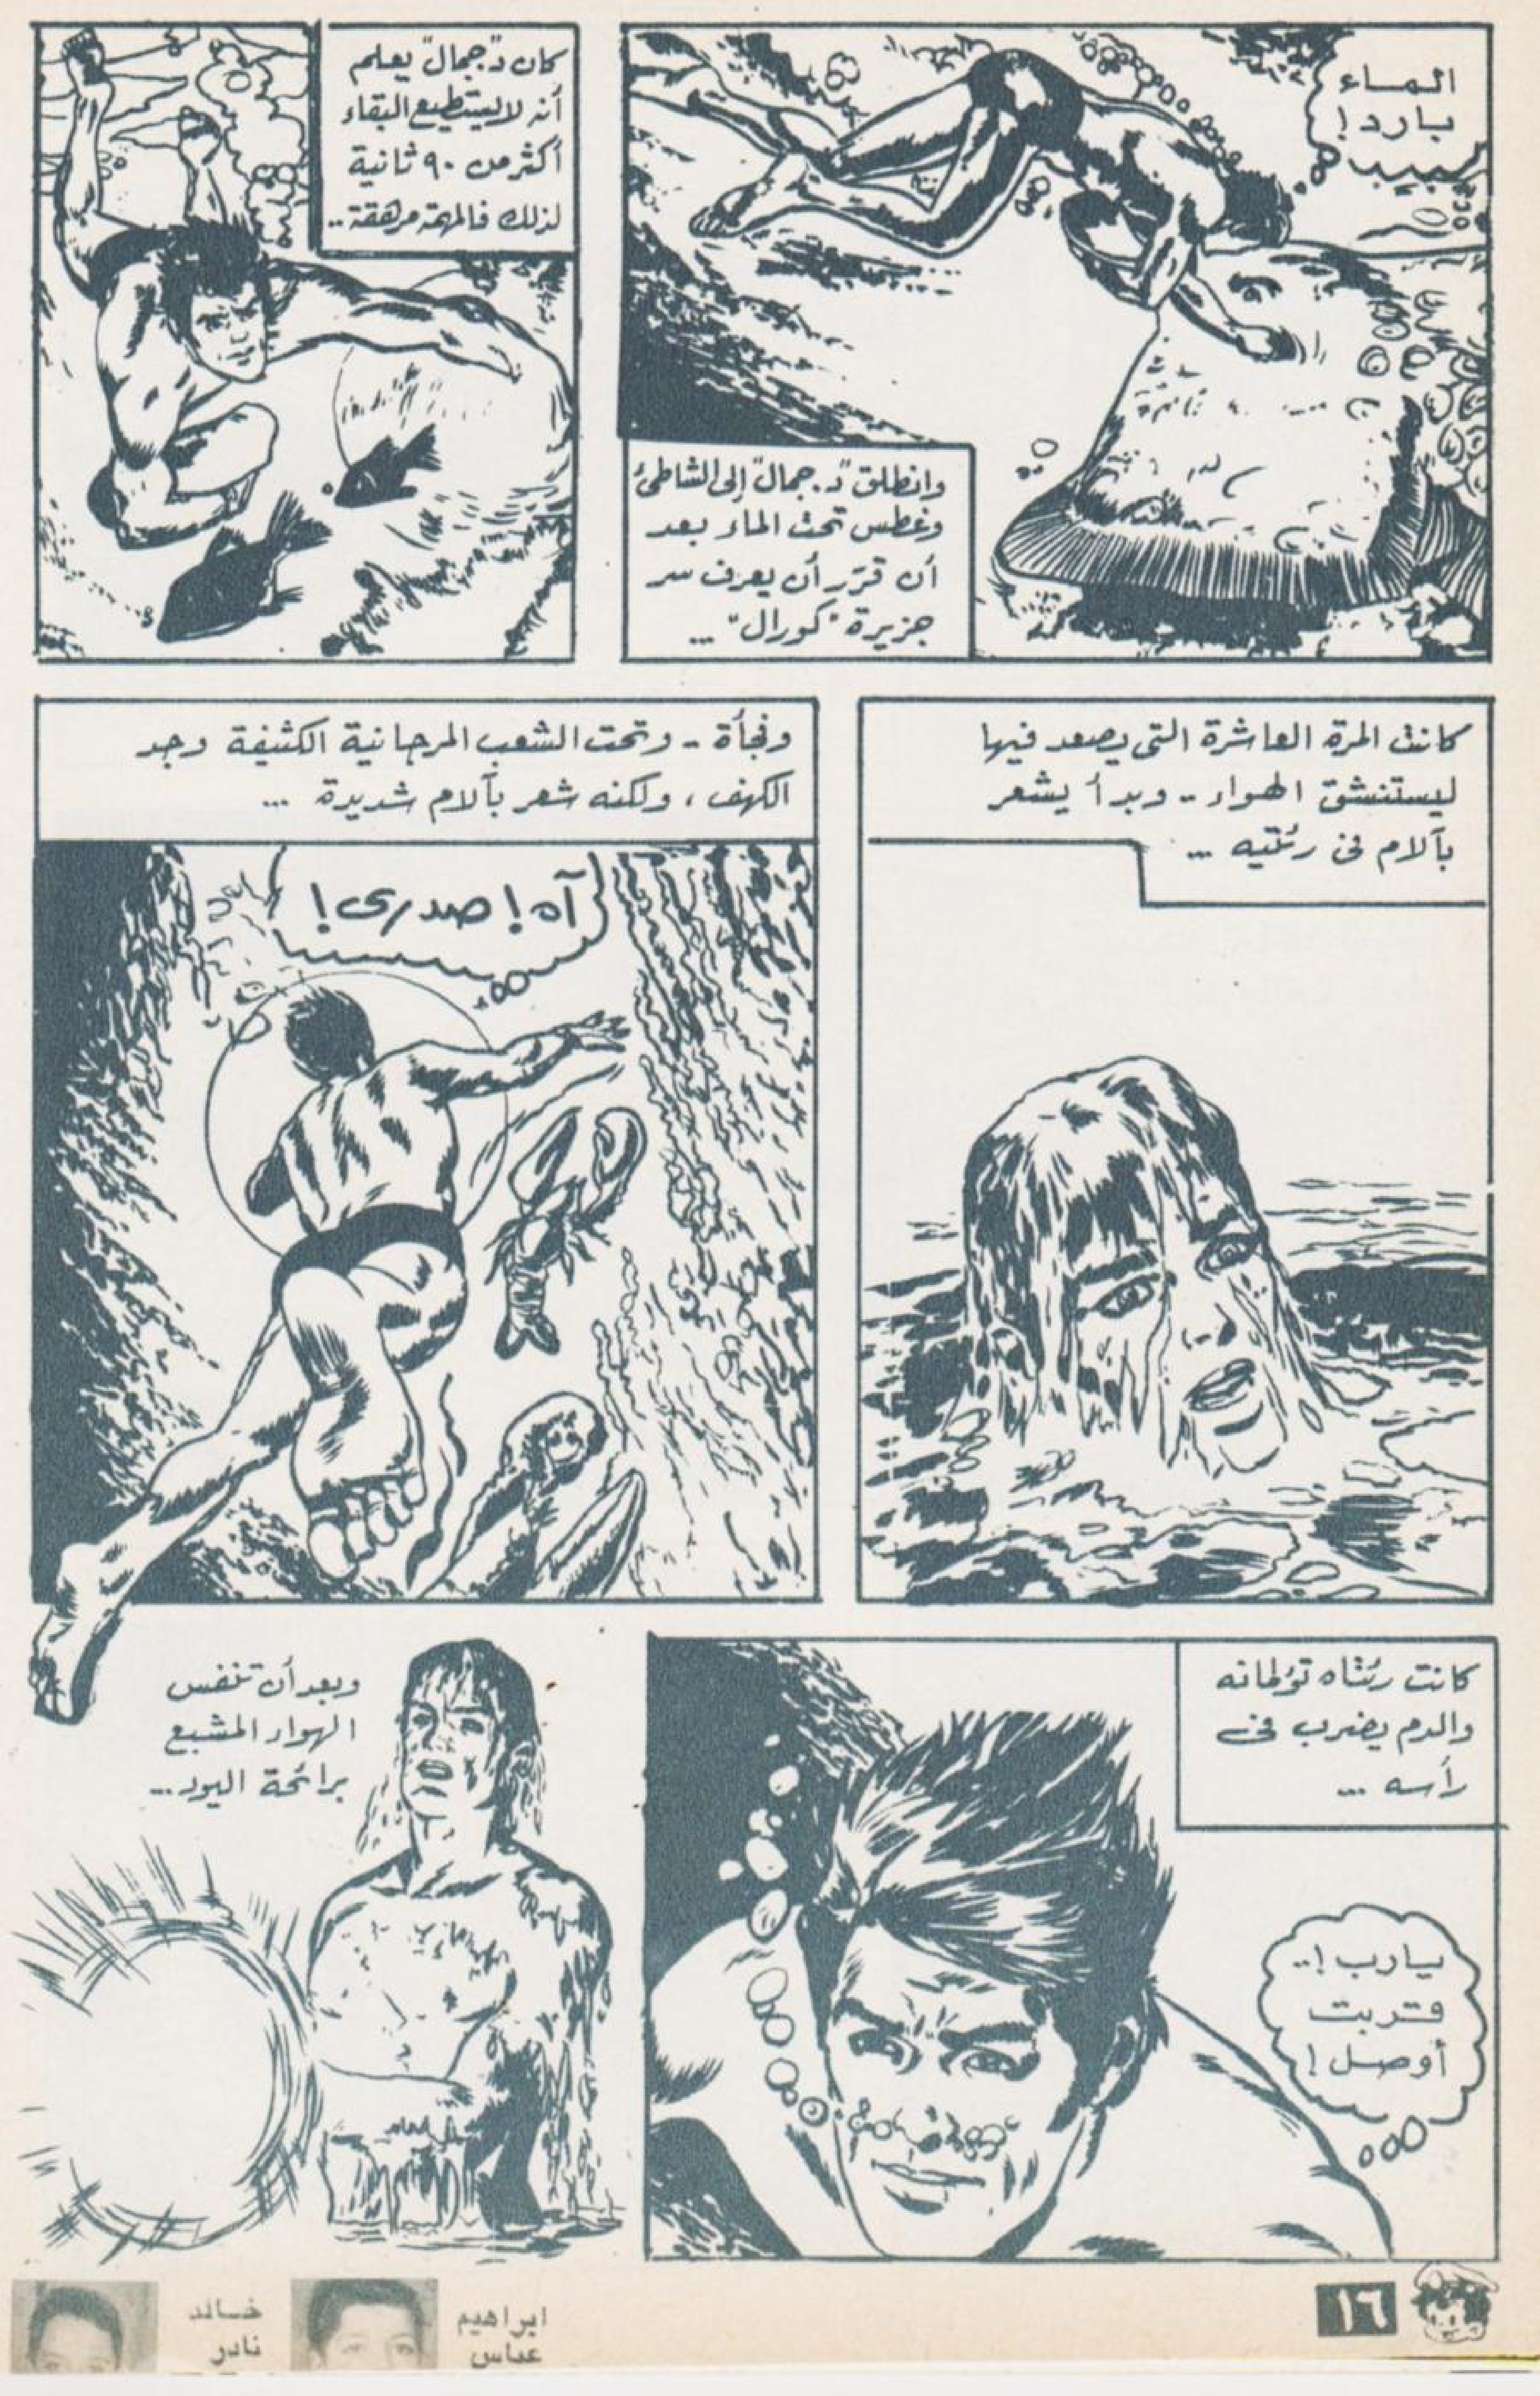 الماء
بارد!
وانطلق "د. جمال" إلى الشاطئ
وغطس تحت الماء بعد
أن قرّر أن يعرف سر
جزيرة "كورال" ...
كان "د. جمال" يعلم
أنه لا يستطيع البقاء
أكثر من ٩٠ ثانية
لذلك فالمهمة مرهقة ..
كانت المرة العاشرة التى يصعد فيها
ليستنشق الهواء .. وبدأ يشعر
بآلام فى رئتيه ...
وفجأة .. وتحت الشعب المرجانية الكثيفة وجد
الكهف ، ولكنه شعر بآلام شديدة ...
آه! صدرى!
كانت رئتاه تؤلمانه
والدم يضرب فى
رأسه ...
يارب!..
قربت
أوصل!
وبعد أن تنفس
الهواء المشبع
برائحة اليود ...
ابراهيم
عباس
خالد
نادر
١٦